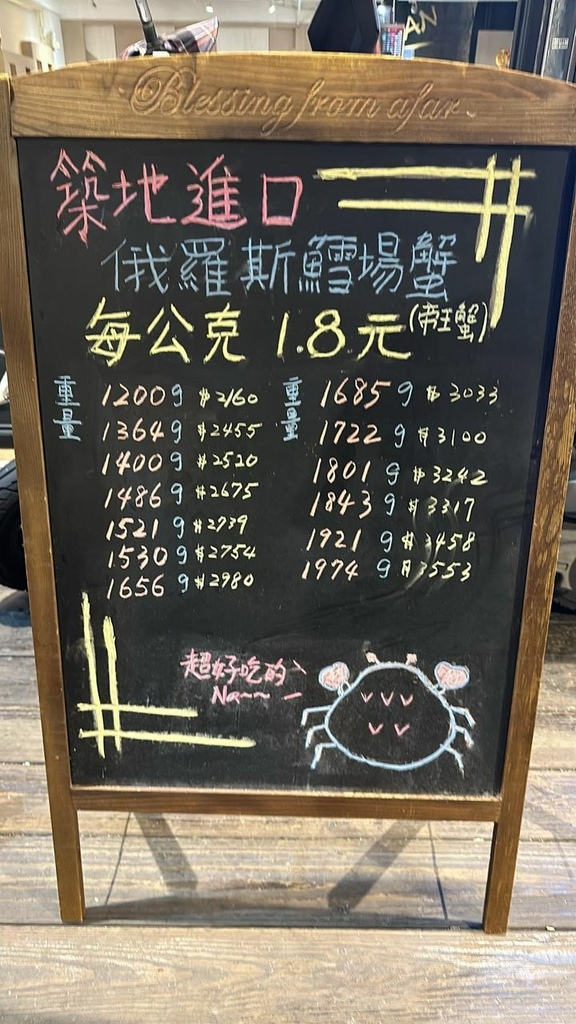 Blessing from afar
築地進口
俄羅斯鱈場蟹
每公克 1.8元(帝王蟹)
重量
1200g $2160
1364g $2455
1400g $2520
1486g $2675
1521g $2739
1530g $2754
1656g $2980
重量
1685g $3033
1722g $3100
1801g $3242
1843g $3317
1921g $3458
1974g $3553
超好吃的
Na~~